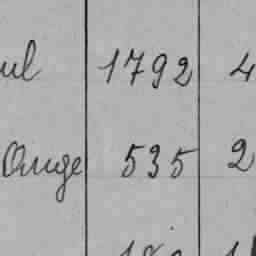 ul 1792 4
Ange 535 2